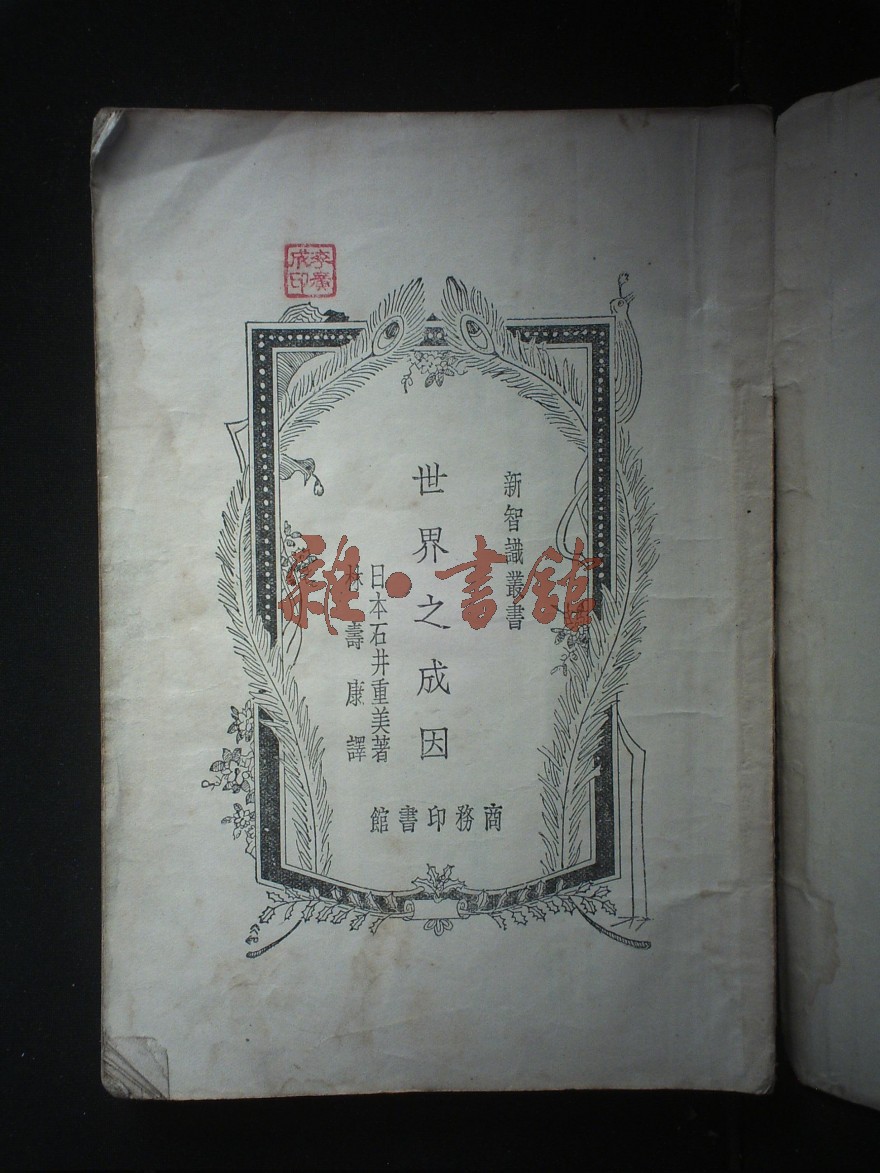 新智識叢書
世界之成因
日本石井重美著
林壽康譯
商務印書館
李廣成印
雜·書館